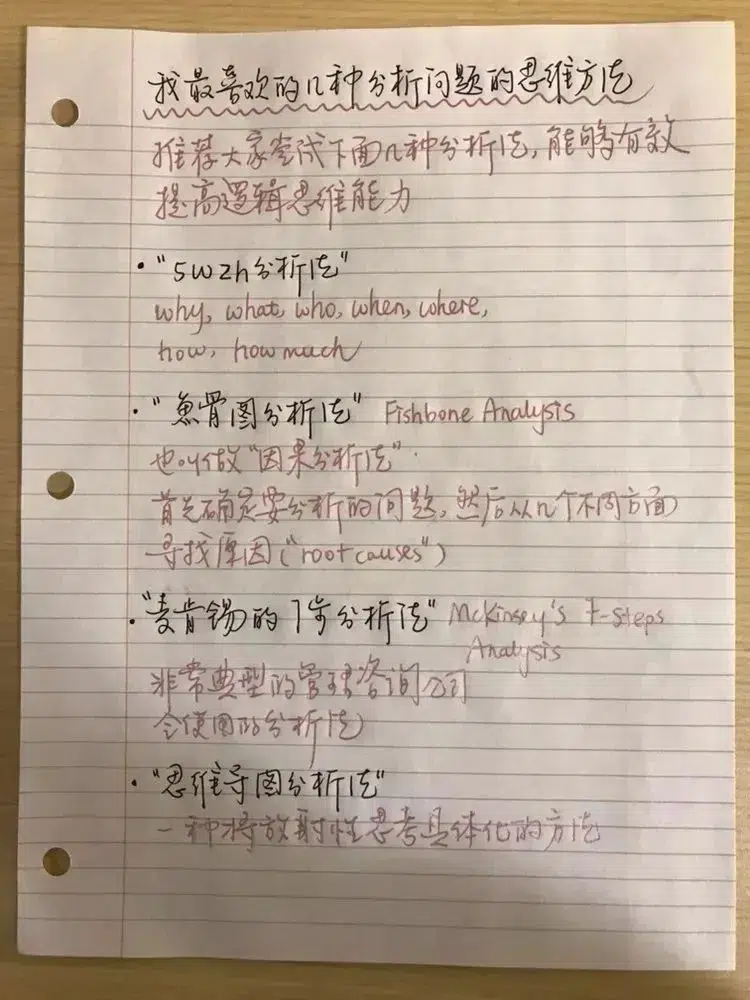 我最喜欢的几种分析问题的思维方法
推荐大家尝试下面几种分析法,能够有效
提高逻辑思维能力
·"5w2h分析法"
why, what, who, when, where,
how, how much
·"鱼骨图分析法" Fishbone Analysis
也叫做"因果分析法".
首先确定要分析的问题,然后从几个不同方面
寻找原因("root causes")
·"麦肯锡的7步分析法" McKinsey's 7-Steps
Analysis
非常典型的管理咨询公司
会使用的分析法
·"思维导图分析法"
一种将放射性思考具体化的方法